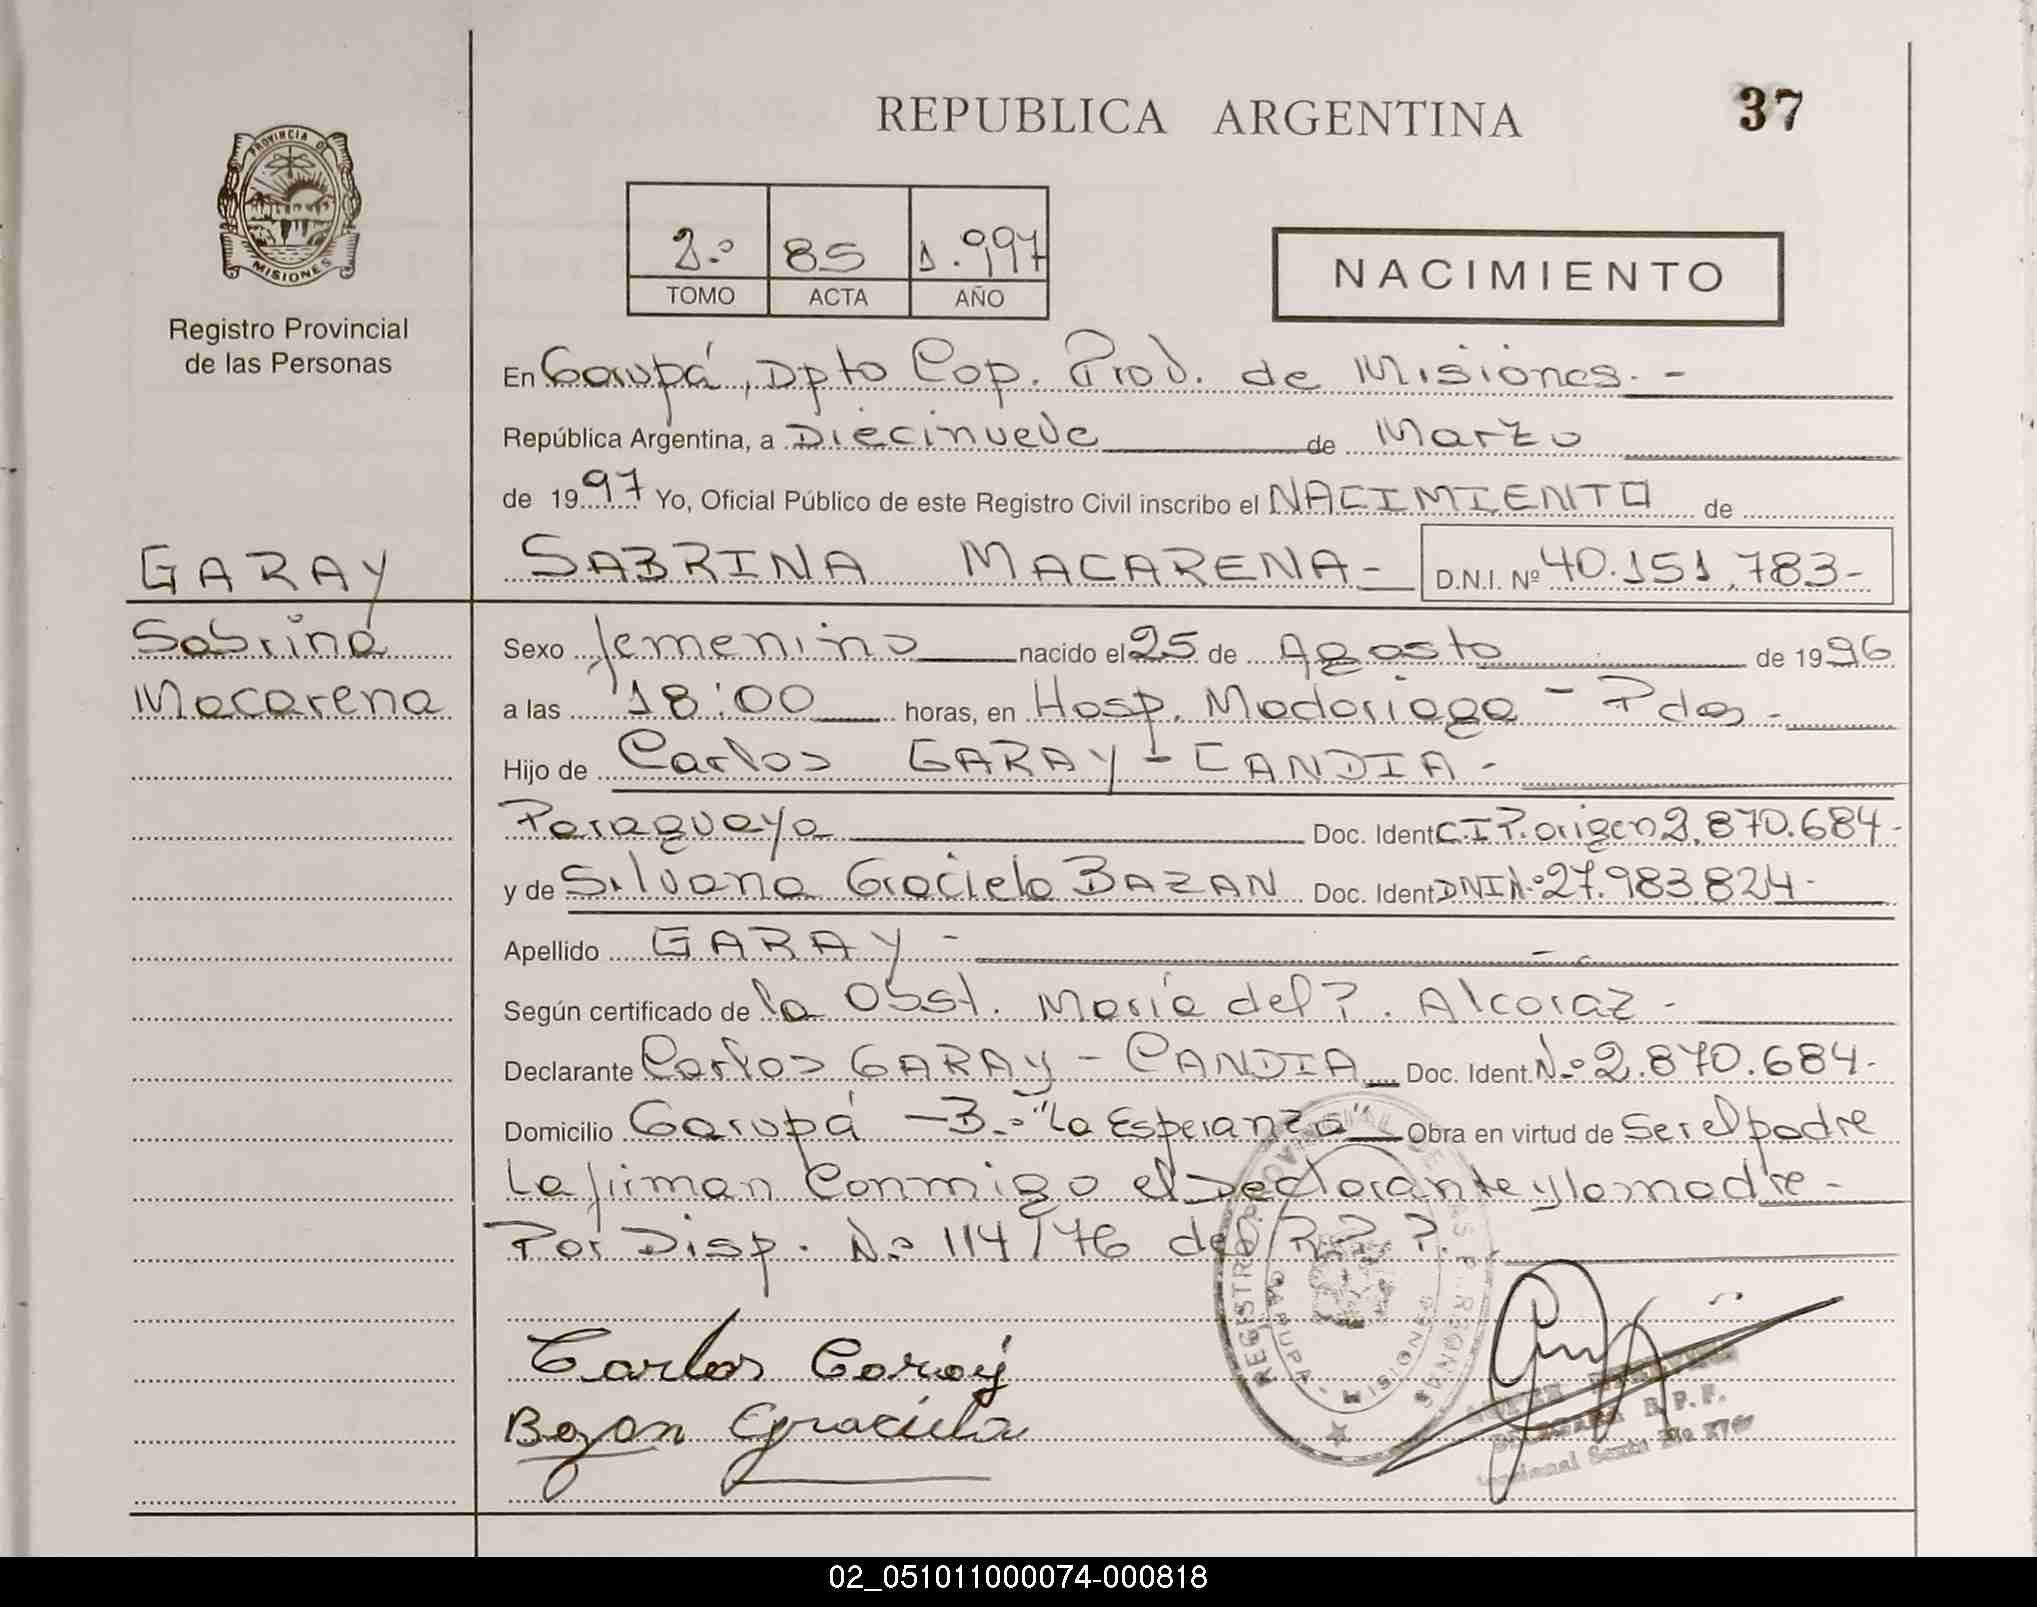 REPUBLICA ARGENTINA
37
PROVINCIA D
MISIONES
Registro Provincial
de las Personas
2.º 85 1.997
TOMO ACTA AÑO
NACIMIENTO
En Garupá, Dpto Cap. Prov. de Misiones. -
República Argentina, a Diecinueve de Marzo
de 1997 Yo, Oficial Público de este Registro Civil inscribo el NACIMIENTO de
GARAY
SABRINA MACARENA- D.N.I. Nº 40.151.783-
Sabrina
Macarena
Sexo femenino nacido el 25 de Agosto de 1996
a las 18:00 horas, en Hosp. Madariaga - Pdas -
Hijo de Carlos GARAY - CANDIA -
Paraguaya Doc. Ident C.I.P. origen 2.870.684-
y de Silvana Graciela BAZAN Doc. Ident DNI Nº 27.983.824-
Apellido GARAY -
Según certificado de la Obst. María del P. Alcaraz -
Declarante Carlos GARAY - CANDIA Doc. Ident. Nº 2.870.684-
Domicilio Garupá - B.º "La Esperanza" Obra en virtud de Ser el padre
La firman Conmigo el Declarante y la madre -
Por Disp. Nº 114/76 del R.P.P.
Carlos Garay
Bazan Graciela
REGISTRO PROVINCIAL DE LAS PERSONAS
GARUPA - MISIONES
R.P.P.
02_051011000074-000818